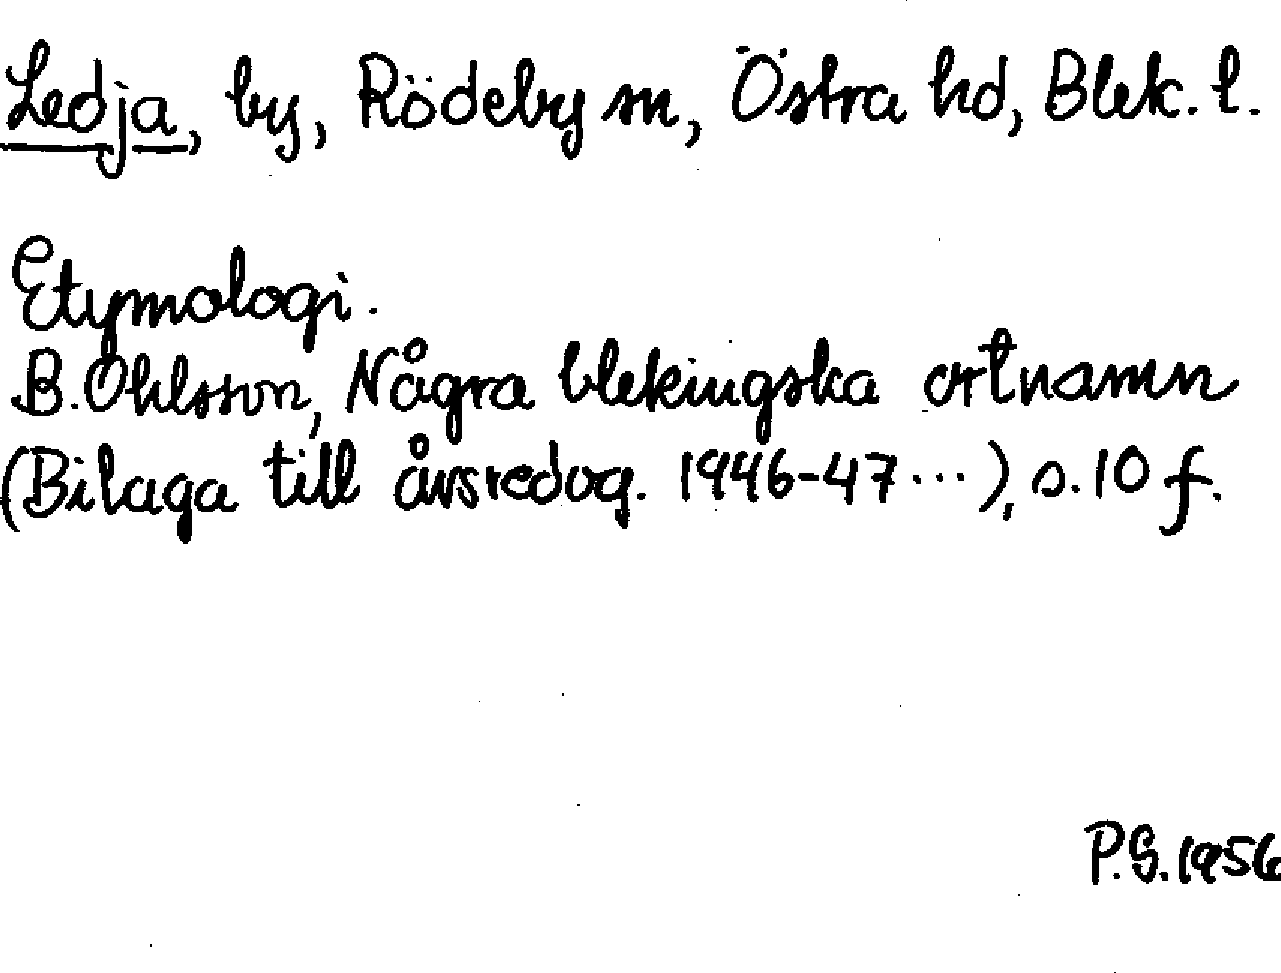 Ledja, by, Rödeby sn, Östra hd, Blek. l.
Etymologi.
B. Ohlsson, Några blekingska ortnamn
(Bilaga till årsredog. 1946-47...), s. 10 f.
P.S. 1956